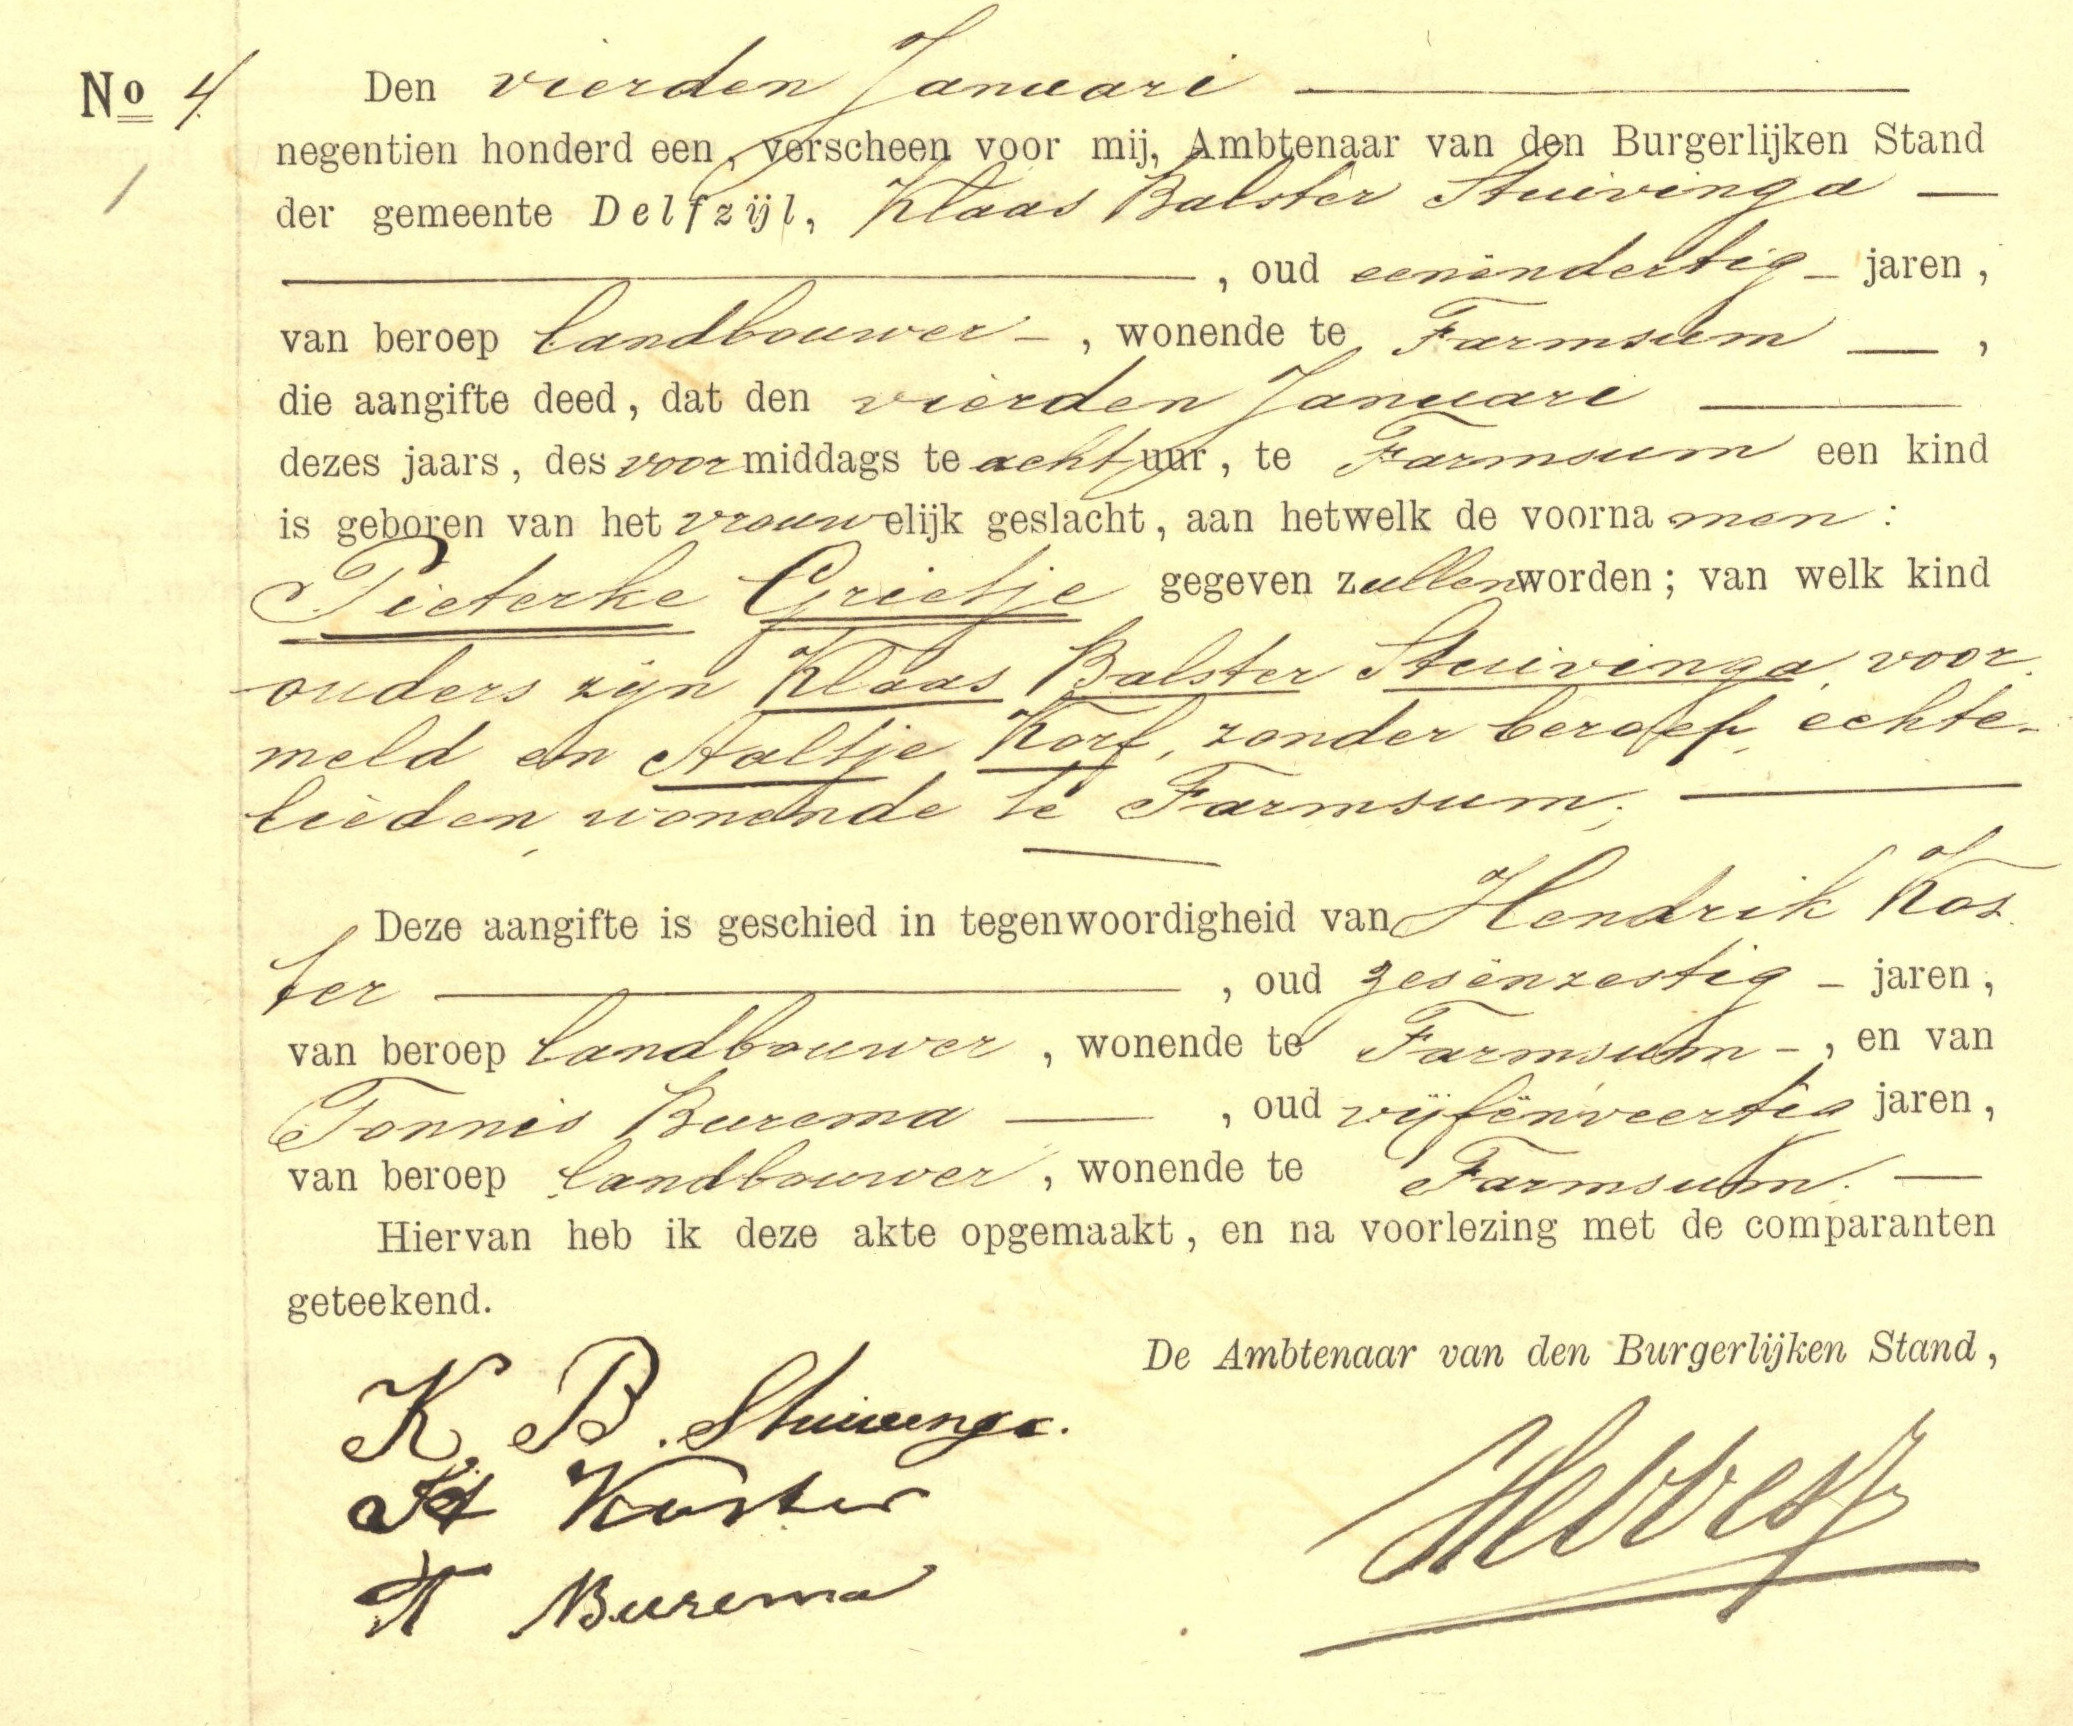 No 4. Den vierden Januari
negentien honderd een, verscheen voor mij, Ambtenaar van den Burgerlijken Stand
der gemeente Delfzijl, Klaas Balster Stuivinga
, oud eenëndertig jaren,
van beroep landbouwer, wonende te Farmsum,
die aangifte deed, dat den vierden Januari
dezes jaars, des voormiddags te acht uur, te Farmsum een kind
is geboren van het vrouwelijk geslacht, aan hetwelk de voornamen:
Pieterke Grietje gegeven zullen worden; van welk kind
ouders zijn Klaas Balster Stuivinga, voor-
meld en Aaltje Korf, zonder beroep, echte-
lieden, wonende te Farmsum;
Deze aangifte is geschied in tegenwoordigheid van Hendrik Kos-
ter, oud zesënzestig jaren,
van beroep landbouwer, wonende te Farmsum, en van
Tonnis Burema, oud vijfënveertig jaren,
van beroep landbouwer, wonende te Farmsum.
Hiervan heb ik deze akte opgemaakt, en na voorlezing met de comparanten
geteekend.
De Ambtenaar van den Burgerlijken Stand,
K. B. Stuivinga.
H Koster
T Burema